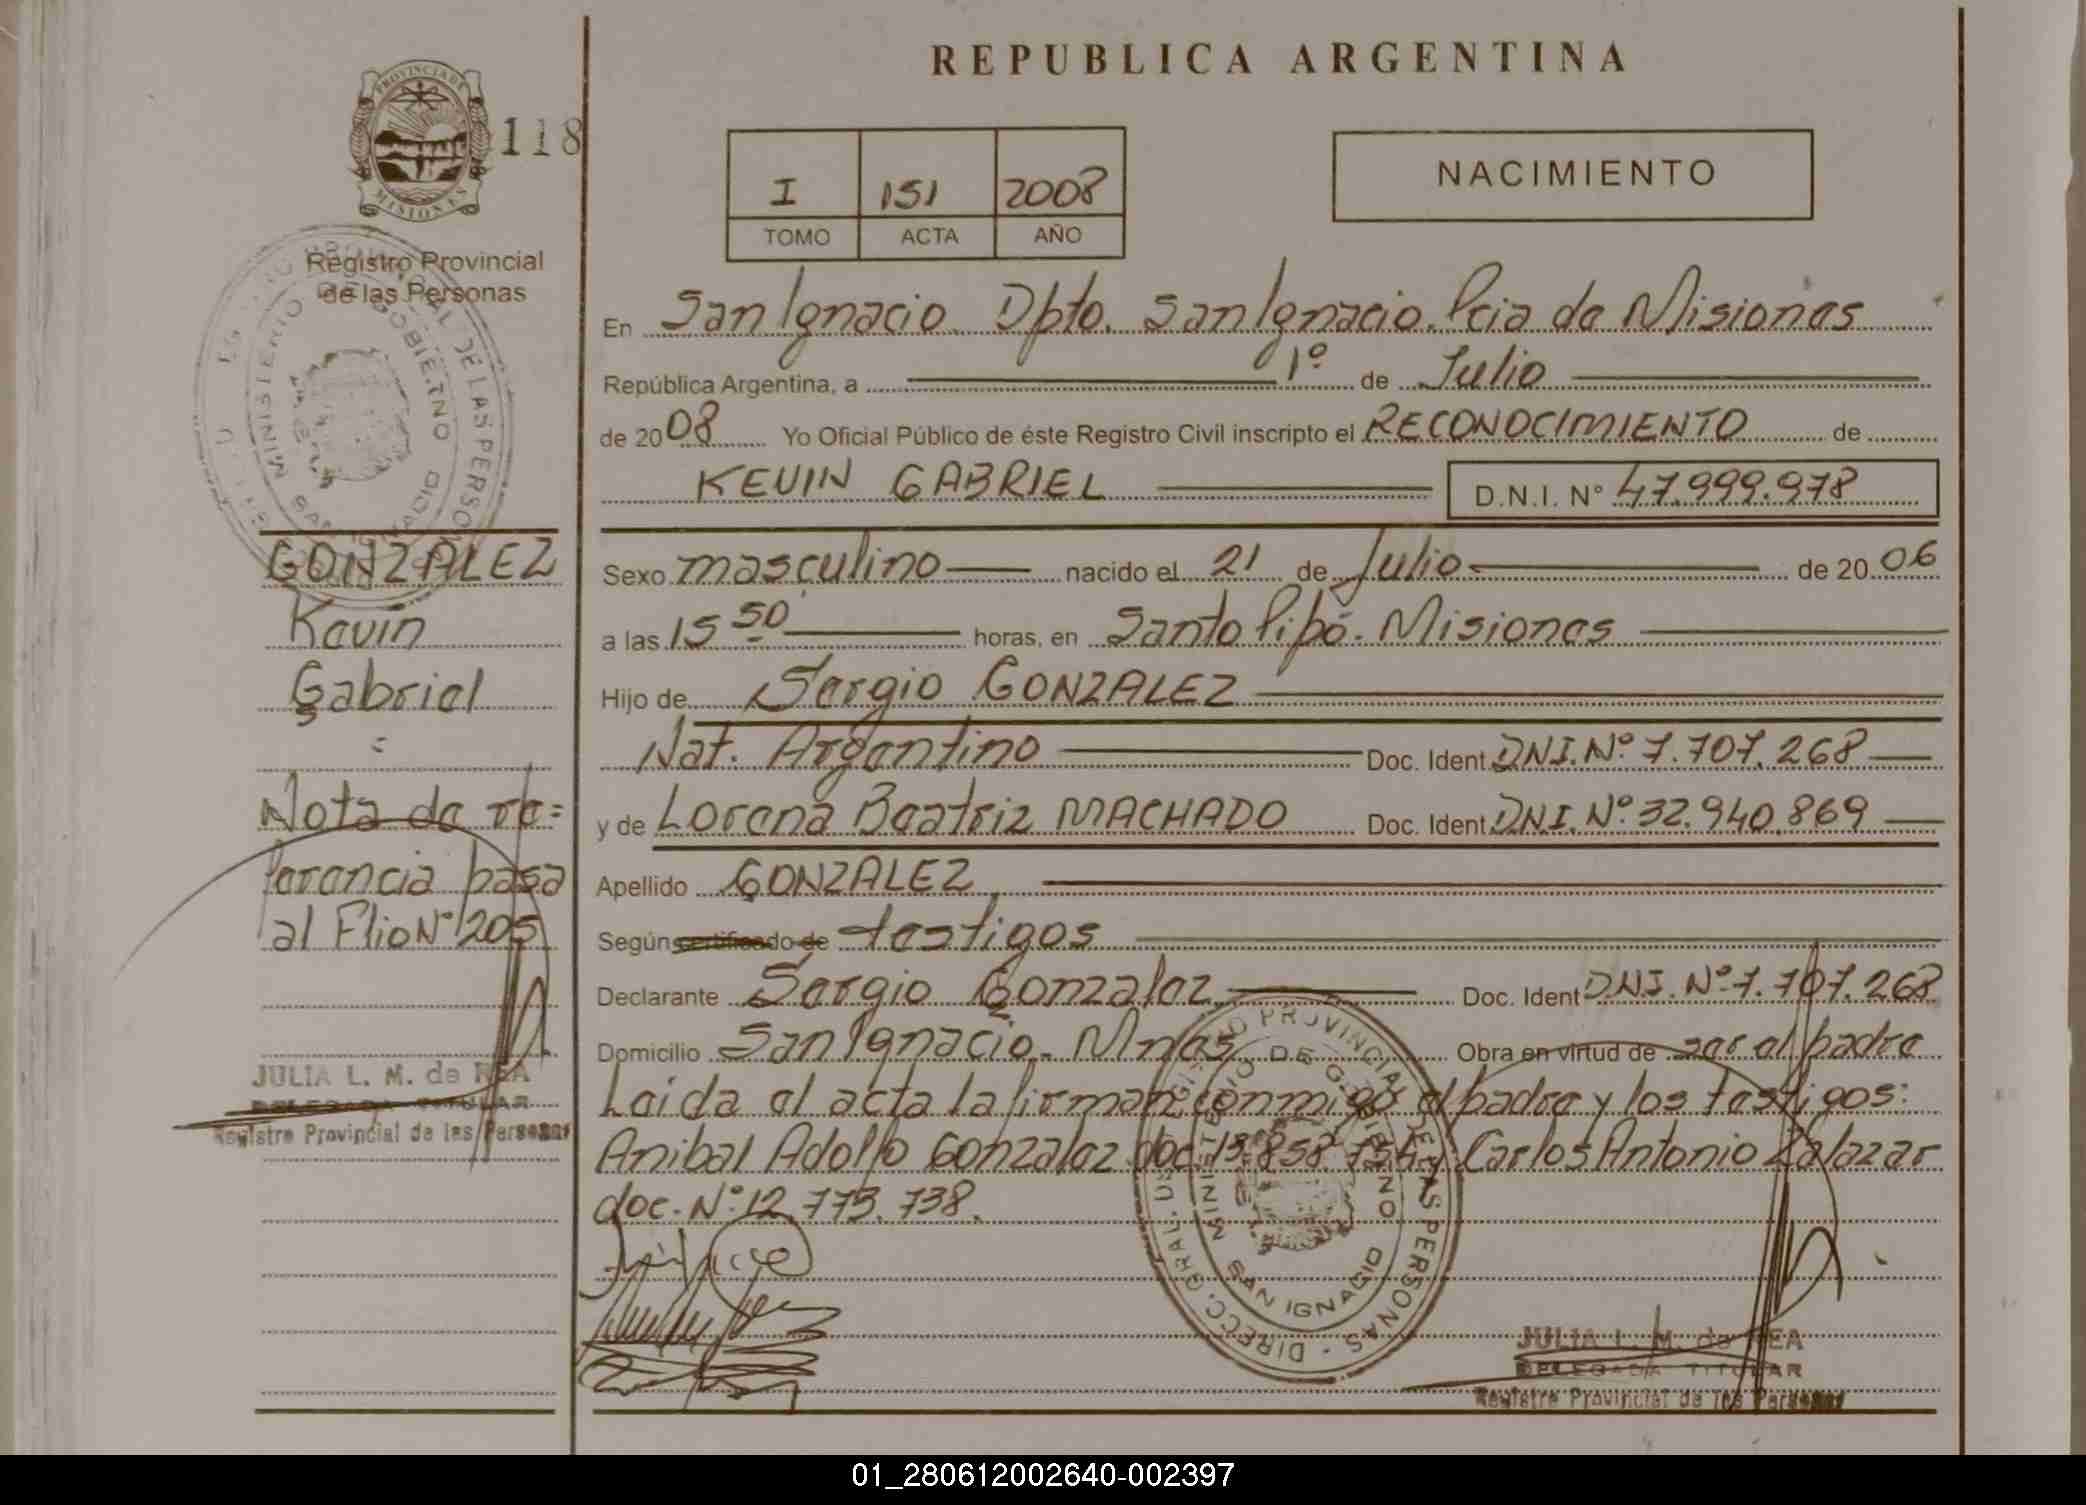 REPUBLICA ARGENTINA
PROVINCIA DE
MISIONES
118
Registro Provincial
de las Personas
I 151 2008
TOMO ACTA AÑO
NACIMIENTO
En San Ignacio Dpto. San Ignacio. Pcia de Misiones
República Argentina, a 1º de Julio
de 2008 Yo Oficial Público de éste Registro Civil inscripto el RECONOCIMIENTO de
KEVIN GABRIEL D.N.I. Nº 47.999.978
Sexo masculino nacido el 21 de Julio de 2006
a las 15 50 horas, en Santo Pipó. Misiones
Hijo de Sergio GONZALEZ
Nat. Argentino Doc. Ident DNI. Nº 7.707.268
y de Lorena Beatriz MACHADO Doc. Ident DNI. Nº 32.940.869
Apellido GONZALEZ
Según certificado de testigos
Declarante Sergio Gonzalez Doc. Ident DNI. Nº 7.707.268
Domicilio San Ignacio. Mnes Obra en virtud de ser el padre
Leida el acta la firman conmigo el padre y los testigos:
Anibal Adolfo Gonzalez doc. y Carlos Antonio Zalazar
doc. Nº 12.773.738.
GONZALEZ
Kevin
Gabriel
=
Nota de re=
ferencia pasa
al Flio Nº 205
JULIA L. M. de REA
DELEGADA TITULAR
Registro Provincial de las Personas
DIRECC. GRAL. DEL REGISTRO PROVINCIAL DE LAS PERSONAS
MINISTERIO DE GOBIERNO
SAN IGNACIO
JULIA L. M. de REA
DELEGADA TITULAR
Registro Provincial de las Personas
01_280612002640-002397